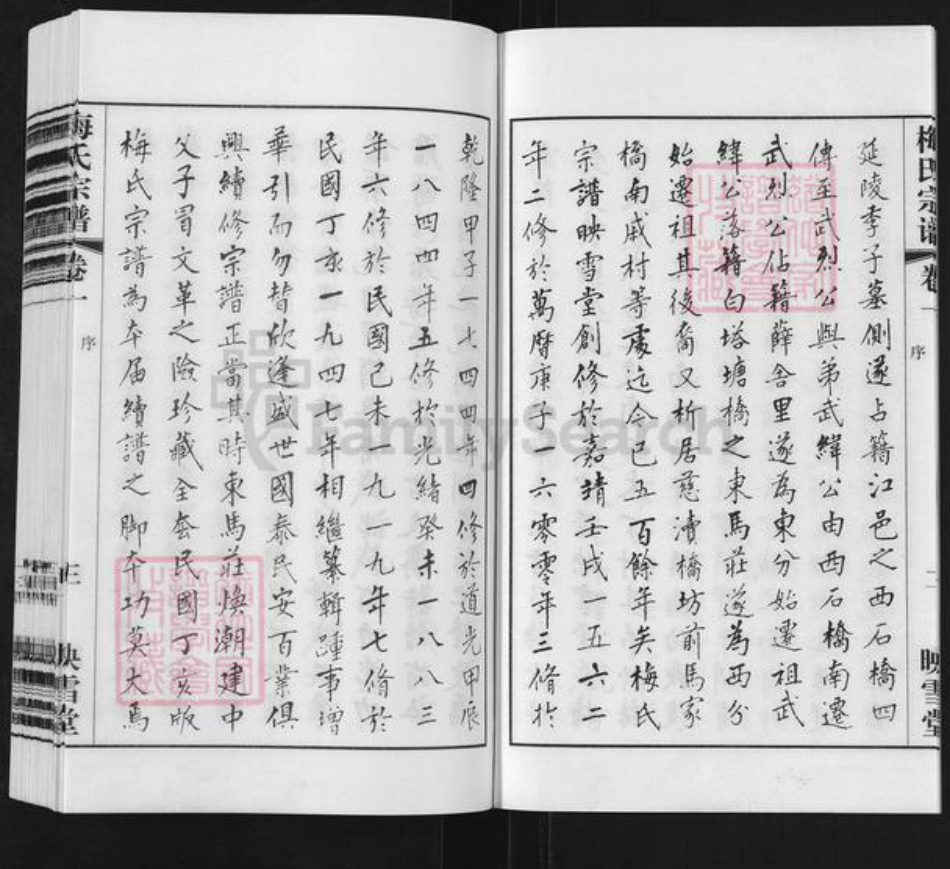 梅氏宗譜
卷一
序
二
映雪堂
延陵季子墓側遂占籍江邑之西石橋四
傳至武烈公與弟武緯公由西石橋南遷
武烈公佔籍薛舍里遂為東分始遷祖武
緯公落籍白塔塘橋之東馬莊遂為西分
始遷祖其後裔又析居慈瀆橋坊前馬家
橋南戚村等處迄今已五百餘年矣梅氏
宗譜映雪堂創修於嘉靖壬戌一五六二
年二修於萬曆庚子一六零零年三修於
乾隆甲子一七四四年四修於道光甲辰
一八四四年五修於光緒癸未一八八三
年六修於民國己未一九一九年七修於
民國丁亥一九四七年相繼纂輯踵事增
華引而勿替欣逢盛世國泰民安百業俱
興續修宗譜正當其時東馬莊煥潮建中
父子冒文革之險珍藏全套民國丁亥版
梅氏宗譜為本届續譜之脚本功莫大焉
梅氏宗譜
卷一
序
三
映雪堂
FamilySearch